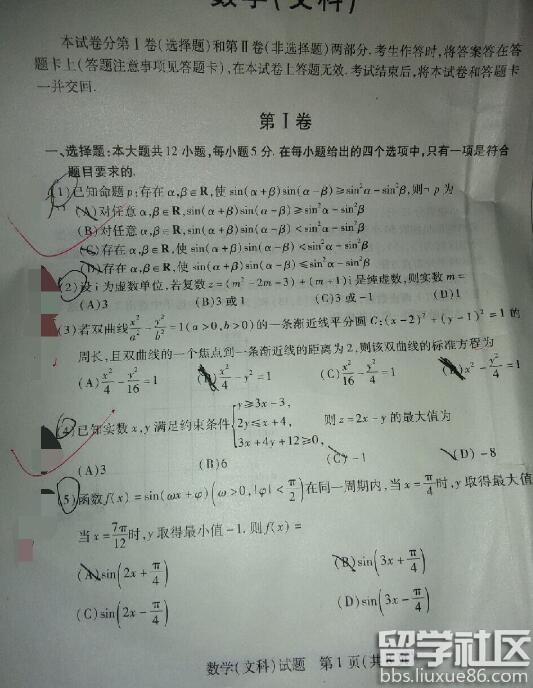 数学(文科)
本试卷分第Ⅰ卷(选择题)和第Ⅱ卷(非选择题)两部分.考生作答时,将答案答在答
题卡上(答题注意事项见答题卡),在本试卷上答题无效.考试结束后,将本试卷和答题卡
一并交回.
第Ⅰ卷
一、选择题:本大题共12小题,每小题5分.在每小题给出的四个选项中,只有一项是符合
题目要求的.
(1)已知命题p:存在α,β∈R,使 sin(α+β)sin(α-β)≥sin²α-sin²β,则¬p为
(A)对任意α,β∈R,sin(α+β)sin(α-β)≥sin²α-sin²β
(B)对任意α,β∈R,sin(α+β)sin(α-β)<sin²α-sin²β
(C)存在α,β∈R,使 sin(α+β)sin(α-β)<sin²α-sin²β
(D)存在α,β∈R,使 sin(α+β)sin(α-β)≤sin²α-sin²β
(2)设i为虚数单位,若复数z=(m²-2m-3)+(m+1)i是纯虚数,则实数m=
(A)3 (B)3或1 (C)3或-1 (D)1
(3)若双曲线x²/a²-y²/b²=1(a>0,b>0)的一条渐近线平分圆C:(x-2)²+(y-1)²=1的
周长,且双曲线的一个焦点到一条渐近线的距离为2,则该双曲线的标准方程为
(A)x²/4-y²/16=1 (B)x²/4-y²=1 (C)x²/16-y²/4=1 x²-y²/4=1
(4)已知实数x,y满足约束条件{y≥3x-3, 2y≤x+4, 3x+4y+12≥0, 则z=2x-y的最大值为
(A)3 (B)6 (C)-1 (D)-8
(5)函数f(x)=sin(ωx+φ)(ω>0,|φ|<π/2)在同一周期内,当x=π/4时,y取得最大值
当x=7π/12时,y取得最小值-1.则f(x)=
(A)sin(2x+π/4) (B)sin(3x+π/4)
(C)sin(2x-π/4) (D)sin(3x-π/4)
数学(文科)试题 第1页(共
留学社区
bbs.liuxue86.com